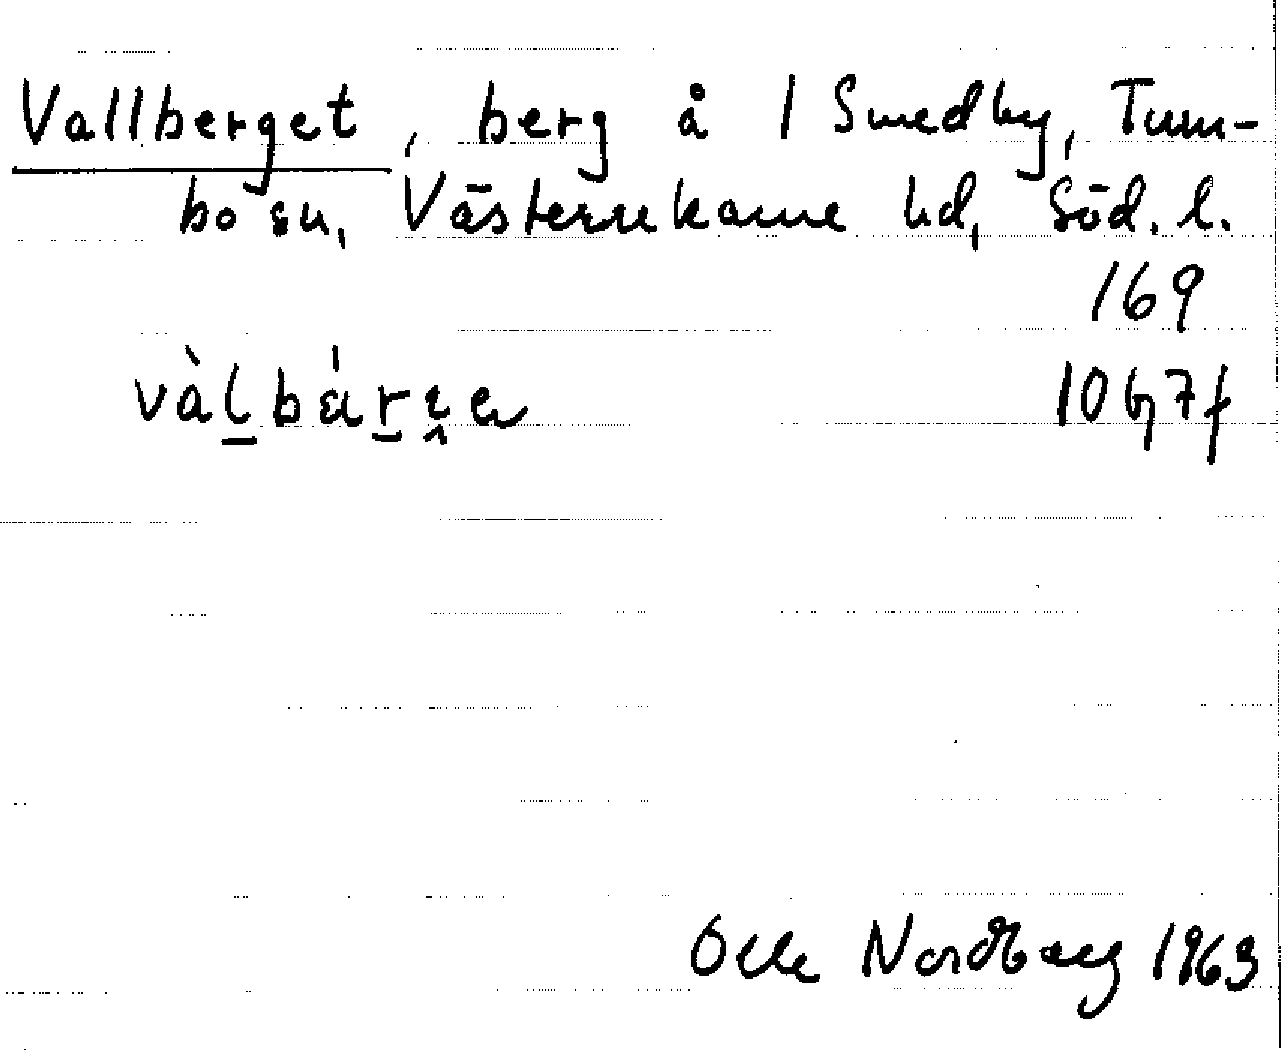 Vallberget, berg å 1 Smedby, Tum-
bo sn, Västerrekarne hd, Söd. l.
169
10G7f
Olle Nordberg 1963